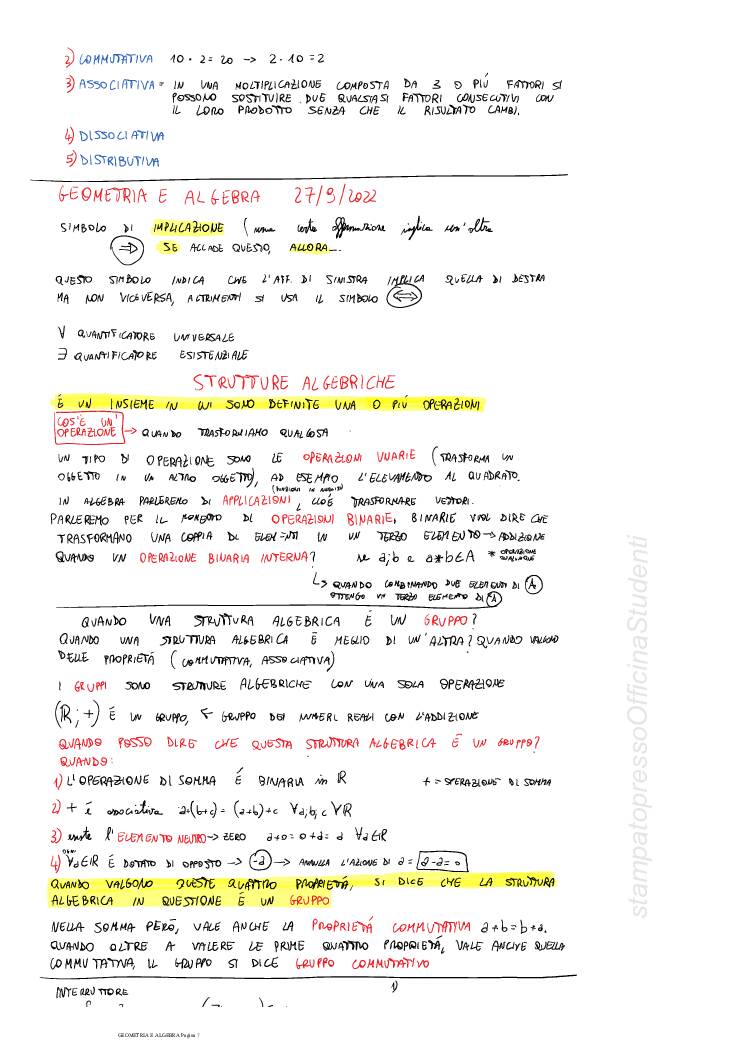 2) COMMUTATIVA 10 · 2 = 20 -> 2 · 10 = 2
3) ASSOCIATIVA = IN UNA MOLTIPLICAZIONE COMPOSTA DA 3 O PIÚ FATTORI SI
POSSONO SOSTITUIRE DUE QUALSIASI FATTORI CONSECUTIVI CON
IL LORO PRODOTTO SENZA CHE IL RISULTATO CAMBI.
4) DISSOCIATIVA
5) DISTRIBUTIVA
GEOMETRIA E ALGEBRA 27/9/2022
SIMBOLO DI IMPLICAZIONE ( una certa affermazione implica un'altra
⇒ SE ACCADE QUESTO, ALLORA...
QUESTO SIMBOLO INDICA CHE L'AFF. DI SINISTRA IMPLICA QUELLA DI DESTRA
MA NON VICEVERSA, ALTRIMENTI SI USA IL SIMBOLO ⇔
∀ QUANTIFICATORE UNIVERSALE
∃ QUANTIFICATORE ESISTENZIALE
STRUTTURE ALGEBRICHE
É UN INSIEME IN CUI SONO DEFINITE UNA O PIÚ OPERAZIONI
COS'É UN'
OPERAZIONE -> QUANDO TRASFORMIAMO QUALCOSA
UN TIPO DI OPERAZIONE SONO LE OPERAZIONI UNARIE ( TRASFORMA UN
OGGETTO IN UN ALTRO OGGETTO), AD ESEMPIO L'ELEVAMENTO AL QUADRATO.
IN ALGEBRA PARLEREMO DI APPLICAZIONI, CIOÉ TRASFORMARE VETTORI.
PARLEREMO PER IL MOMENTO DI OPERAZIONI BINARIE, BINARIE VUOL DIRE CHE
TRASFORMANO UNA COPPIA DI ELEMENTI IN UN TERZO ELEMENTO -> ADDIZIONE
QUANDO UN OPERAZIONE BINARIA INTERNA? se a;b e a*b∈A * OPERAZIONE QUALUNQUE
↳ QUANDO COMBINANDO DUE ELEMENTI DI A
OTTENGO UN TERZO ELEMENTO DI A
QUANDO UNA STRUTTURA ALGEBRICA É UN GRUPPO?
QUANDO UNA STRUTTURA ALGEBRICA É MEGLIO DI UN'ALTRA? QUANDO VALGONO
DELLE PROPRIETÁ ( COMMUTATIVA, ASSOCIATIVA)
I GRUPPI SONO STRUTTURE ALGEBRICHE CON UNA SOLA OPERAZIONE
(ℝ; +) É UN GRUPPO, ← GRUPPO DEI NUMERI REALI CON L'ADDIZIONE
QUANDO POSSO DIRE CHE QUESTA STRUTTURA ALGEBRICA É UN GRUPPO?
QUANDO:
1) L'OPERAZIONE DI SOMMA É BINARIA in ℝ + = OPERAZIONE DI SOMMA
2) + é associativa a+(b+c) = (a+b)+c ∀a;b;c ∀ℝ
3) esiste l'ELEMENTO NEUTRO -> ZERO a+0=0+a=a ∀a∈ℝ
4) OGNI ∀a∈ℝ É DOTATO DI OPPOSTO -> -a -> ANNULLA L'AZIONE DI a = a-a=0
QUANDO VALGONO QUESTE QUATTRO PROPRIETÁ, SI DICE CHE LA STRUTTURA
ALGEBRICA IN QUESTIONE É UN GRUPPO
NELLA SOMMA PERÓ, VALE ANCHE LA PROPRIETÁ COMMUTATIVA a+b=b+a.
QUANDO OLTRE A VALERE LE PRIME QUATTRO PROPRIETÁ, VALE ANCHE QUELLA
COMMUTATIVA, IL GRUPPO SI DICE GRUPPO COMMUTATIVO
INTERRUTTORE 1)
GEOMETRIA E ALGEBRA Pagina 7
stampatopressoOfficinaStudenti